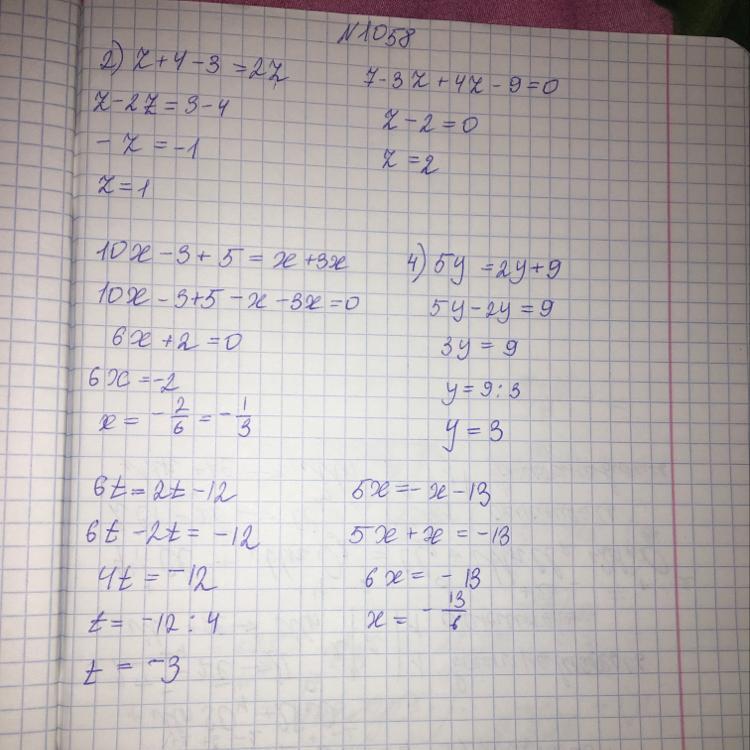 N1058
2) z + 4 - 3 = 2z
z - 2z = 3 - 4
- z = -1
z = 1
7 - 3z + 4z - 9 = 0
z - 2 = 0
z = 2
10x - 3 + 5 = x + 3x
10x - 3 + 5 - x - 3x = 0
6x + 2 = 0
6x = -2
x = - 2/6 = - 1/3
4) 5y = 2y + 9
5y - 2y = 9
3y = 9
y = 9 : 3
y = 3
6t = 2t - 12
6t - 2t = -12
4t = -12
t = -12 : 4
t = -3
5x = - x - 13
5x + x = -13
6x = - 13
x = - 13/6